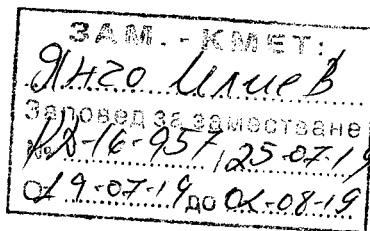 ЗАМ. - КМЕТ:
Янго Илиев
Заповед за заместване
№ РД-16-957, 25-07-19
От 29-07-19 до 02-08-19